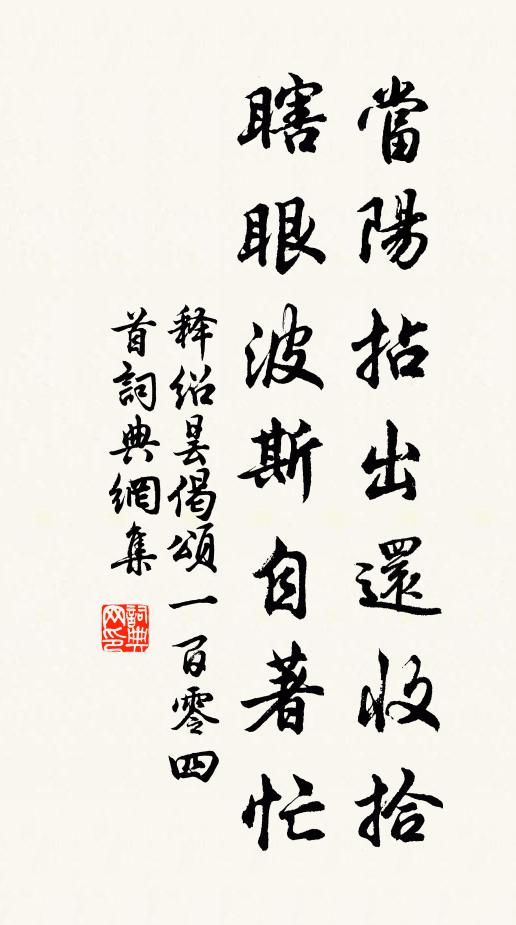 當陽拈出還收拾
瞎眼波斯自著忙
释紹昙偈頌一百零四
首詞典網集
詞典
网印